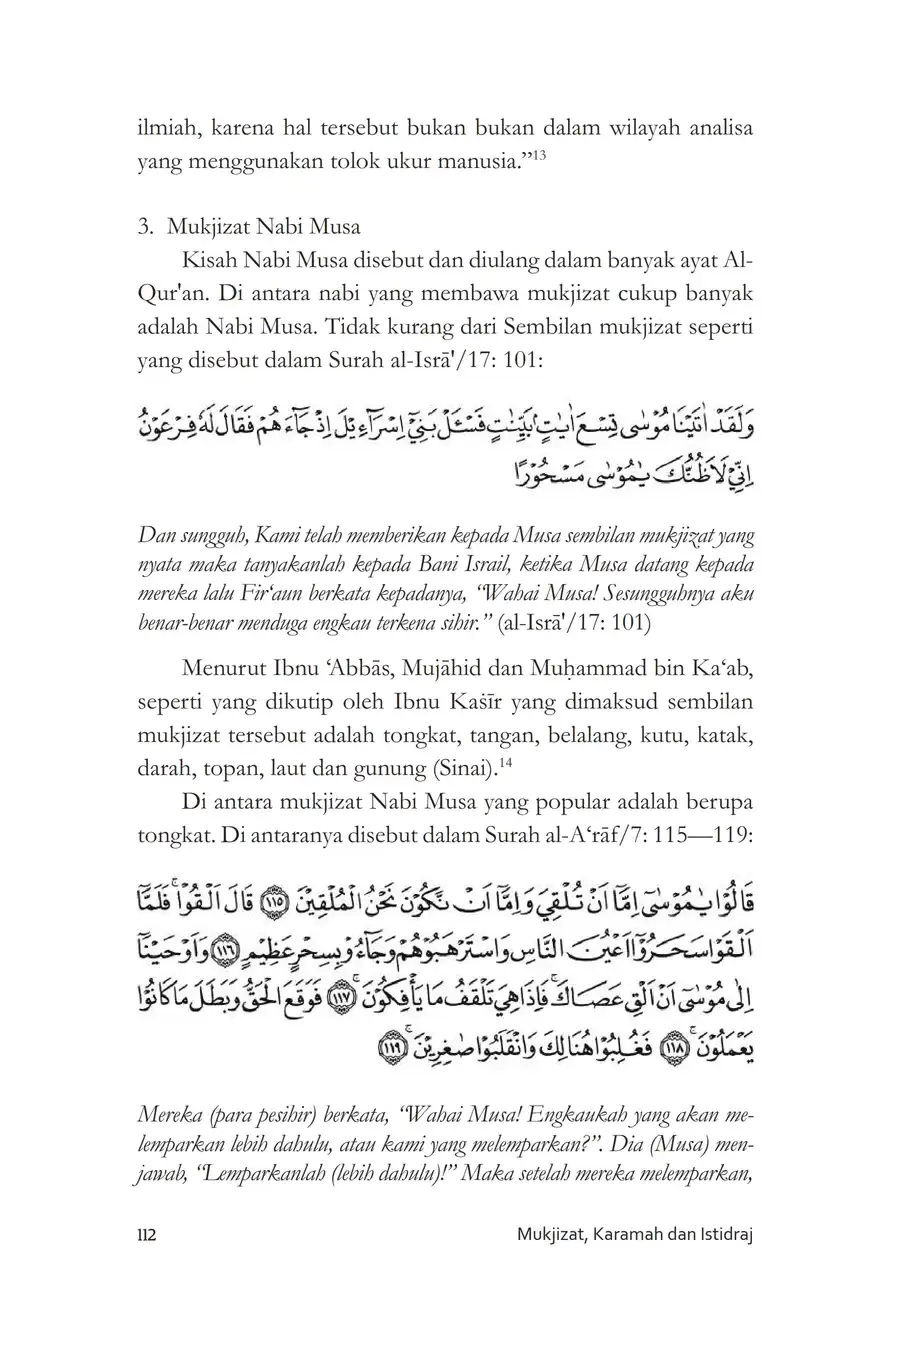 ilmiah, karena hal tersebut bukan bukan dalam wilayah analisa
yang menggunakan tolok ukur manusia.”13
3. Mukjizat Nabi Musa
Kisah Nabi Musa disebut dan diulang dalam banyak ayat Al-
Qur'an. Di antara nabi yang membawa mukjizat cukup banyak
adalah Nabi Musa. Tidak kurang dari Sembilan mukjizat seperti
yang disebut dalam Surah al-Isrā'/17: 101:
وَلَقَدْ اٰتَيْنَا مُوْسٰى تِسْعَ اٰيٰتٍۢ بَيِّنٰتٍ فَسْـَٔلْ بَنِيْٓ اِسْرَاۤءِيْلَ اِذْ جَاۤءَهُمْ فَقَالَ لَهٗ فِرْعَوْنُ
اِنِّيْ لَاَظُنُّكَ يٰمُوْسٰى مَسْحُوْرًا
Dan sungguh, Kami telah memberikan kepada Musa sembilan mukjizat yang
nyata maka tanyakanlah kepada Bani Israil, ketika Musa datang kepada
mereka lalu Fir‘aun berkata kepadanya, “Wahai Musa! Sesungguhnya aku
benar-benar menduga engkau terkena sihir.” (al-Isrā'/17: 101)
Menurut Ibnu ‘Abbās, Mujāhid dan Muḥammad bin Ka‘ab,
seperti yang dikutip oleh Ibnu Kaṡīr yang dimaksud sembilan
mukjizat tersebut adalah tongkat, tangan, belalang, kutu, katak,
darah, topan, laut dan gunung (Sinai).14
Di antara mukjizat Nabi Musa yang popular adalah berupa
tongkat. Di antaranya disebut dalam Surah al-A‘rāf/7: 115—119:
قَالُوْا يٰمُوْسٰٓى اِمَّآ اَنْ تُلْقِيَ وَاِمَّآ اَنْ نَّكُوْنَ نَحْنُ الْمُلْقِيْنَ ١١٥ قَالَ اَلْقُوْاۚ فَلَمَّآ
اَلْقَوْا سَحَرُوْٓا اَعْيُنَ النَّاسِ وَاسْتَرْهَبُوْهُمْ وَجَاۤءُوْ بِسِحْرٍ عَظِيْمٍ ١١٦ وَاَوْحَيْنَآ
اِلٰى مُوْسٰٓى اَنْ اَلْقِ عَصَاكَۚ فَاِذَا هِيَ تَلْقَفُ مَا يَأْفِكُوْنَۚ ١١٧ فَوَقَعَ الْحَقُّ وَبَطَلَ مَا كَانُوْا
يَعْمَلُوْنَۚ ١١٨ فَغُلِبُوْا هُنَالِكَ وَانْقَلَبُوْا صٰغِرِيْنَۚ ١١٩
Mereka (para pesihir) berkata, “Wahai Musa! Engkaukah yang akan me-
lemparkan lebih dahulu, atau kami yang melemparkan?”. Dia (Musa) men-
jawab, “Lemparkanlah (lebih dahulu)!” Maka setelah mereka melemparkan,
112 Mukjizat, Karamah dan Istidraj